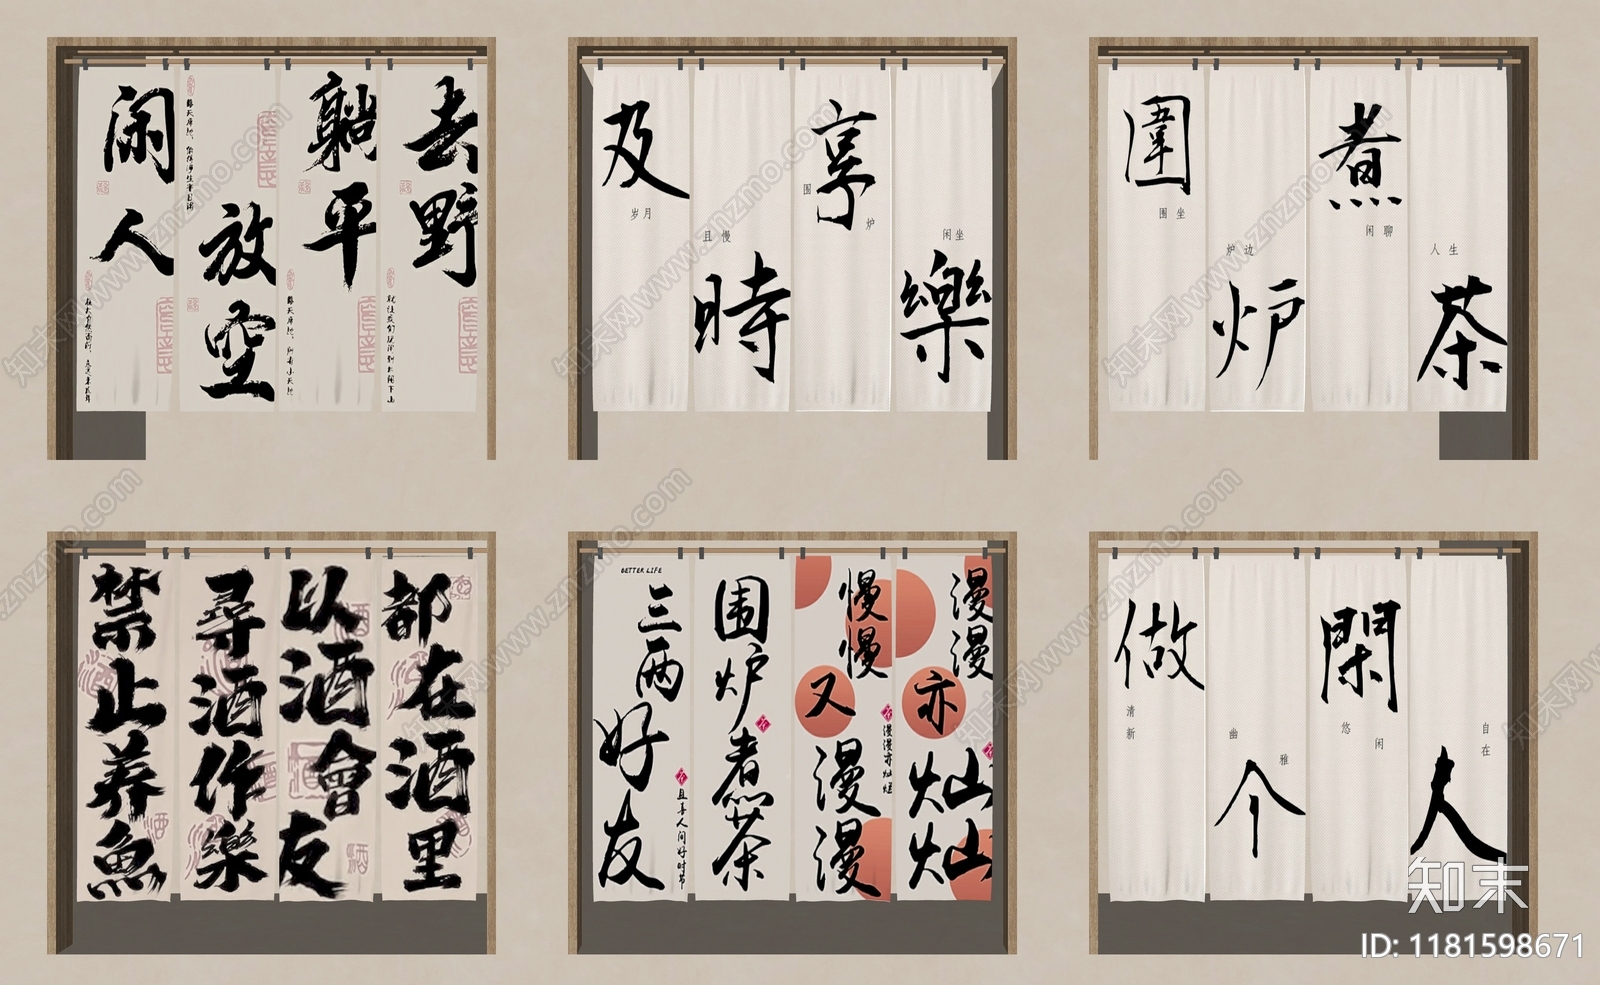 闲人
放空
躺平
去野
及時享樂
岁月
且慢
围炉
闲坐
圍炉煮茶
围坐
炉边
闲聊
人生
禁止养魚
尋酒作樂
以酒會友
都在酒里
BETTER LIFE
三两好友
且喜人间好时节
围炉煮茶
慢慢又漫漫
漫漫亦灿灿
漫漫亦灿烂
做个閑夫
清新
幽雅
悠闲
自在
知末
ID: 1181598671
知末网www.znzmo.com